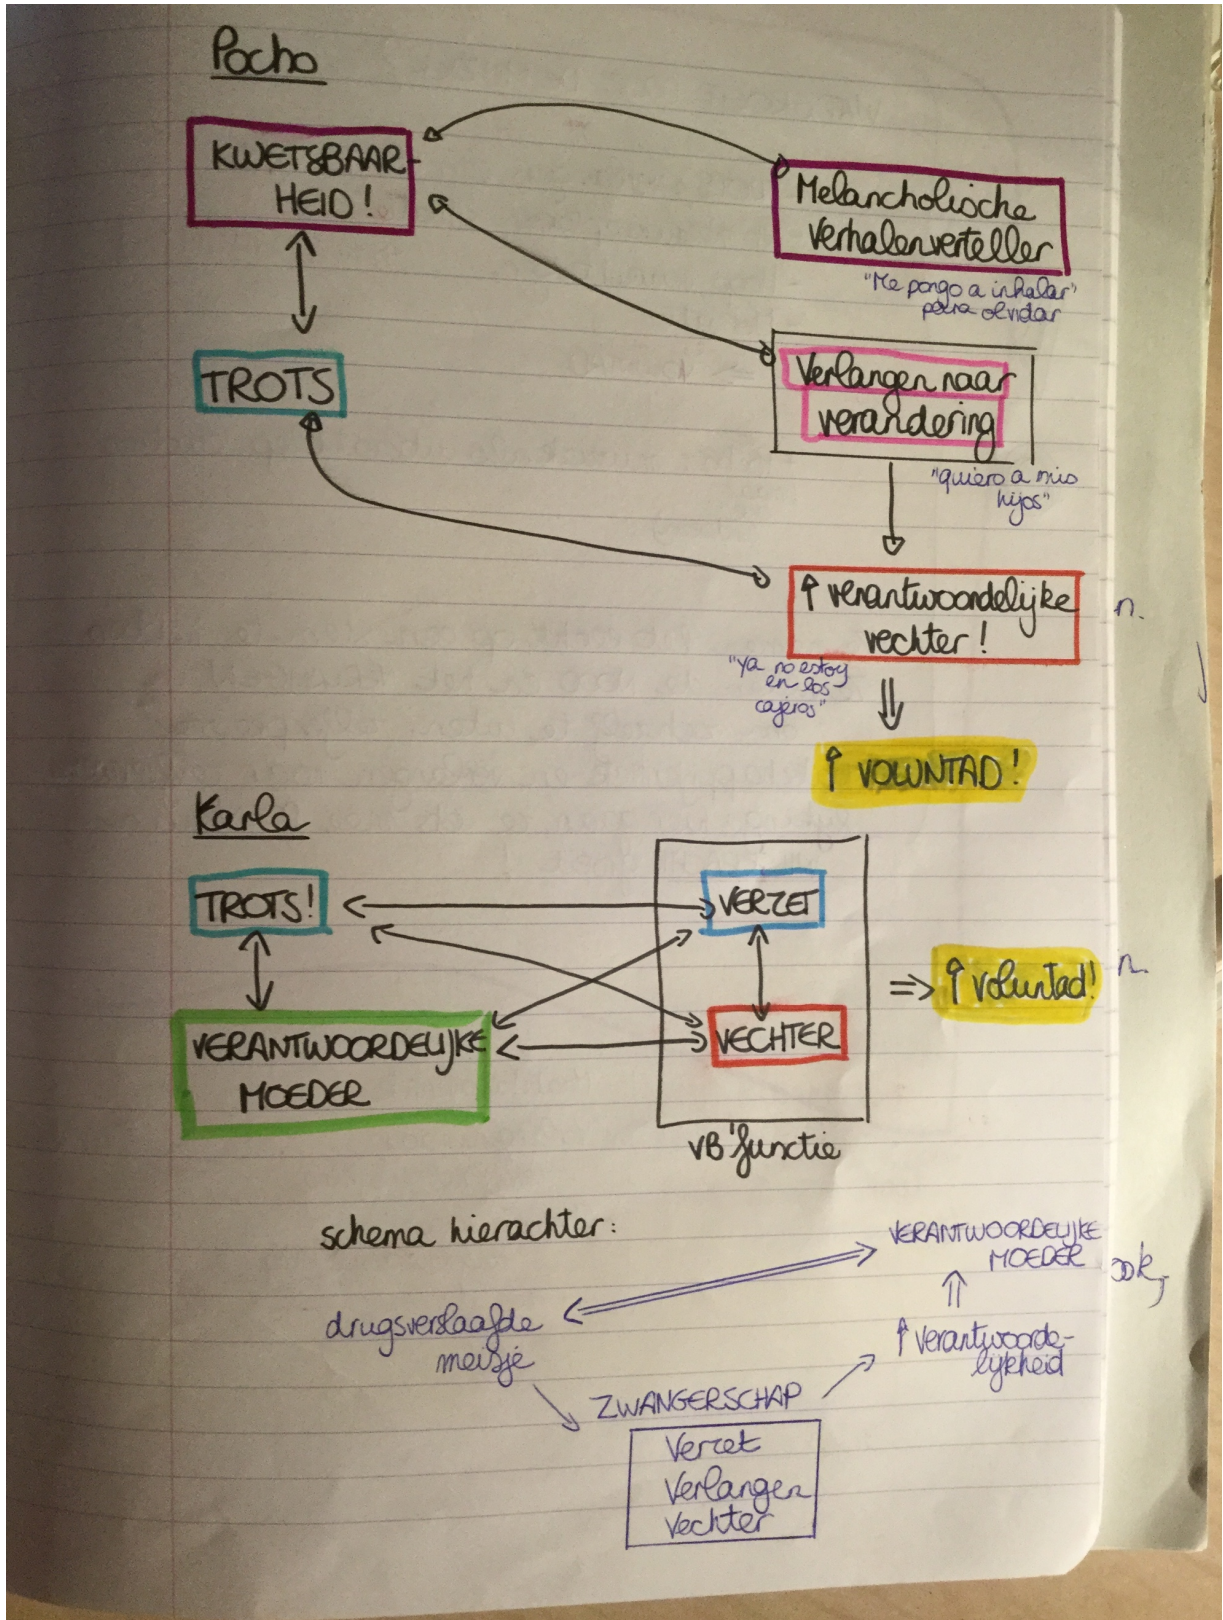 Pocho
KWETSBAAR-
HEID!
Melancholische
verhalenverteller
"Me pongo a inhalar"
para olvidar
TROTS
Verlangen naar
verandering
"quiero a mis
hijos"
↑ verantwoordelijke
vechter!
n.
"ya no estoy
en los
cajeros"
↑ VOLUNTAD!
Karla
TROTS!
VERZET
↑ voluntad!
VERANTWOORDELIJKE
MOEDER
VECHTER
VB'functie
schema hierachter:
VERANTWOORDELIJKE
MOEDER
drugsverslaafde
meisje
↑ verantwoorde-
lijkheid
ZWANGERSCHAP
Verzet
Verlangen
Vechter